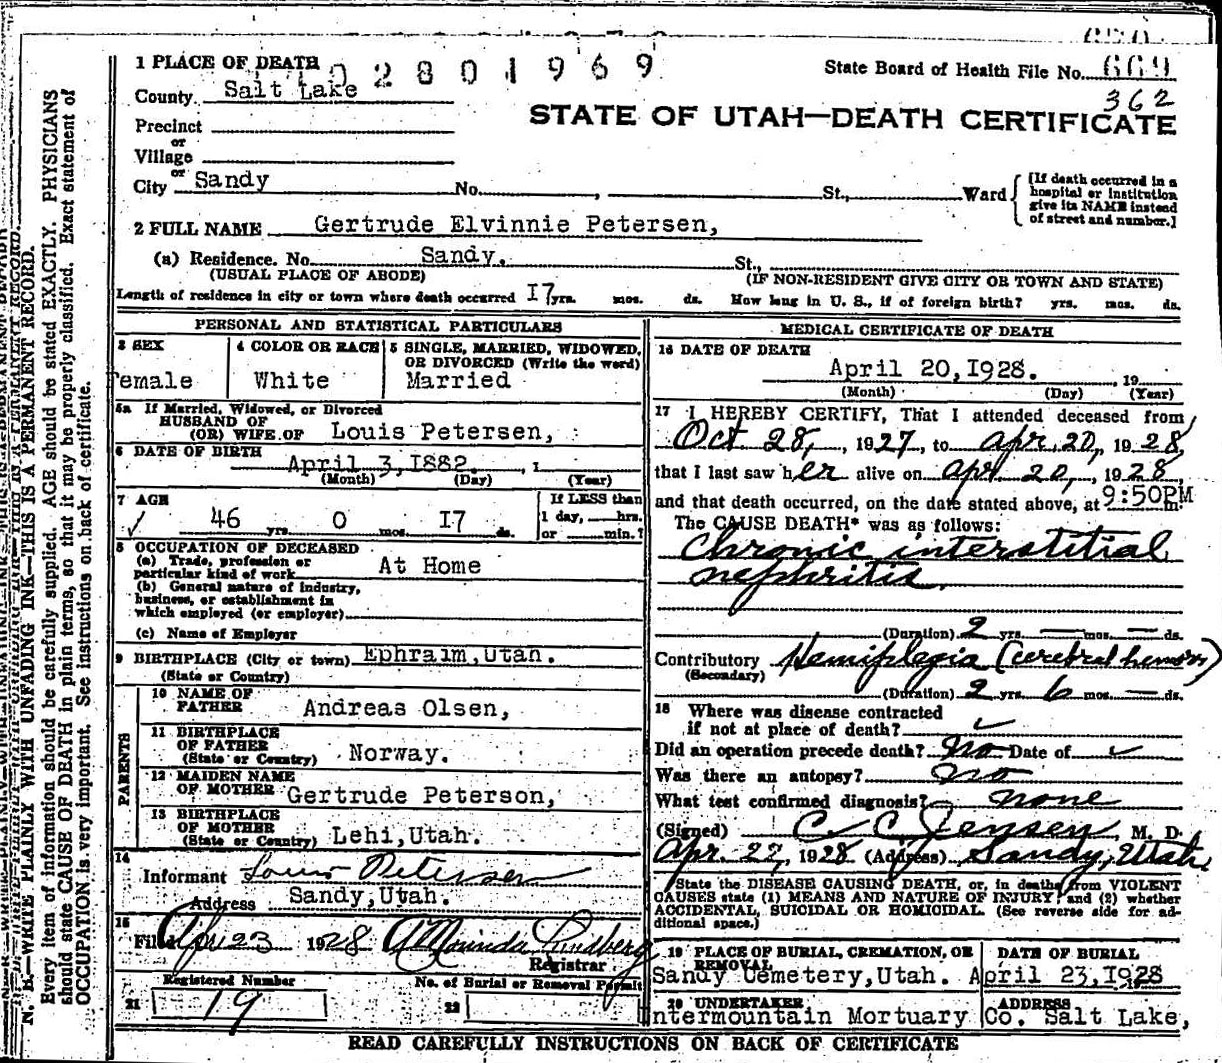 1 PLACE OF DEATH
02801969
State Board of Health File No. 669
County Salt Lake
362
STATE OF UTAH—DEATH CERTIFICATE
Precinct
or
Village
or
City Sandy No. , St., Ward
[If death occurred in a hospital or institution give its NAME instead of street and number.]
2 FULL NAME Gertrude Elvinnie Petersen,
(a) Residence. No. Sandy. St.,
(USUAL PLACE OF ABODE) (IF NON-RESIDENT GIVE CITY OR TOWN AND STATE)
Length of residence in city or town where death occurred I7 yrs. mos. ds. How long in U. S., if of foreign birth? yrs. mos. ds.
PERSONAL AND STATISTICAL PARTICULARS
3 SEX
emale
4 COLOR OR RACE
White
5 SINGLE, MARRIED, WIDOWED,
OR DIVORCED (Write the word)
Married
5a If Married, Widowed, or Divorced
HUSBAND OF
(OR) WIFE OF Louis Petersen,
6 DATE OF BIRTH
April 3, I882. , 1
(Month) (Day) (Year)
7 AGE
46 yrs. 0 mos. I7 ds.
If LESS than
1 day, hrs.
or min.?
8 OCCUPATION OF DECEASED
(a) Trade, profession or
particular kind of work At Home
(b) General nature of industry,
business, or establishment in
which employed (or employer)
(c) Name of Employer
9 BIRTHPLACE (City or town) Ephraim, Utah.
(State or Country)
PARENTS
10 NAME OF
FATHER Andreas Olsen,
11 BIRTHPLACE
OF FATHER
(State or Country) Norway.
12 MAIDEN NAME
OF MOTHER Gertrude Peterson,
13 BIRTHPLACE
OF MOTHER
(State or Country) Lehi, Utah.
14
Informant Louis Petersen
Address Sandy, Utah.
15
Filed Apr 23 1928 A Morinda Lindberg
Registrar
Registered Number
21 19
No. of Burial or Removal Permit
22
MEDICAL CERTIFICATE OF DEATH
16 DATE OF DEATH
April 20, I928. , 19
(Month) (Day) (Year)
17 I HEREBY CERTIFY, That I attended deceased from
Oct 28, , 1927, to Apr. 20, , 1928,
that I last saw her alive on Apr. 20, , 1928,
and that death occurred, on the date stated above, at 9:50PM m.
The CAUSE DEATH* was as follows:
Chronic interstitial
nephritis
(Duration) 2 yrs. — mos. — ds.
Contributory Hemiplegia (cerebral hemorr)
(Secondary)
(Duration) 2 yrs. 6 mos. — ds.
18 Where was disease contracted
if not at place of death? ✓
Did an operation precede death? No Date of ✓
Was there an autopsy? no
What test confirmed diagnosis? none
(Signed) C C Jensen, M. D.
Apr. 22, 1928 (Address) Sandy, Utah
*State the DISEASE CAUSING DEATH, or, in deaths from VIOLENT
CAUSES state (1) MEANS AND NATURE OF INJURY; and (2) whether
ACCIDENTAL, SUICIDAL OR HOMICIDAL. (See reverse side for ad-
ditional space.)
19 PLACE OF BURIAL, CREMATION, OR
REMOVAL
Sandy Cemetery, Utah.
DATE OF BURIAL
April 23, I928
20 UNDERTAKER
Intermountain Mortuary
ADDRESS
Co. Salt Lake,
READ CAREFULLY INSTRUCTIONS ON BACK OF CERTIFICATE
N. B.—WRITE PLAINLY WITH UNFADING INK—THIS IS A PERMANENT RECORD.
Every item of information should be carefully supplied. AGE should be stated EXACTLY. PHYSICIANS
should state CAUSE OF DEATH in plain terms, so that it may be properly classified. Exact statement of
OCCUPATION is very important. See instructions on back of certificate.